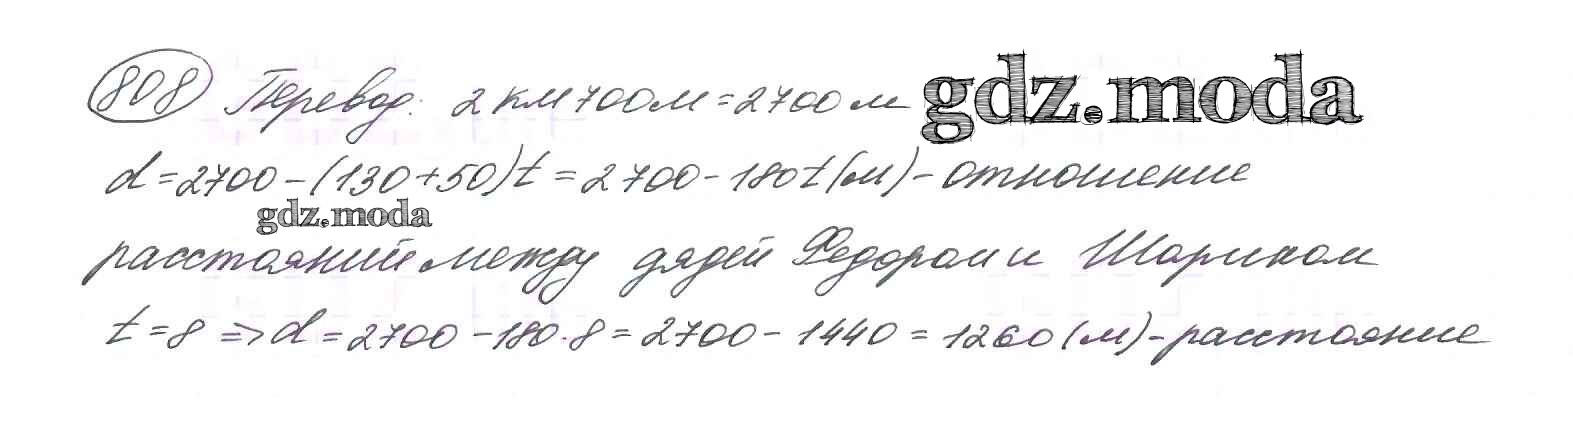 808 Перевод: 2 км 700 м = 2700 м gdz.moda
d = 2700 - (130 + 50)t = 2700 - 180t (м) - отношение
gdz.moda
расстояний между дядей Федором и Шариком
t = 8 => d = 2700 - 180 · 8 = 2700 - 1440 = 1260 (м) - расстояние